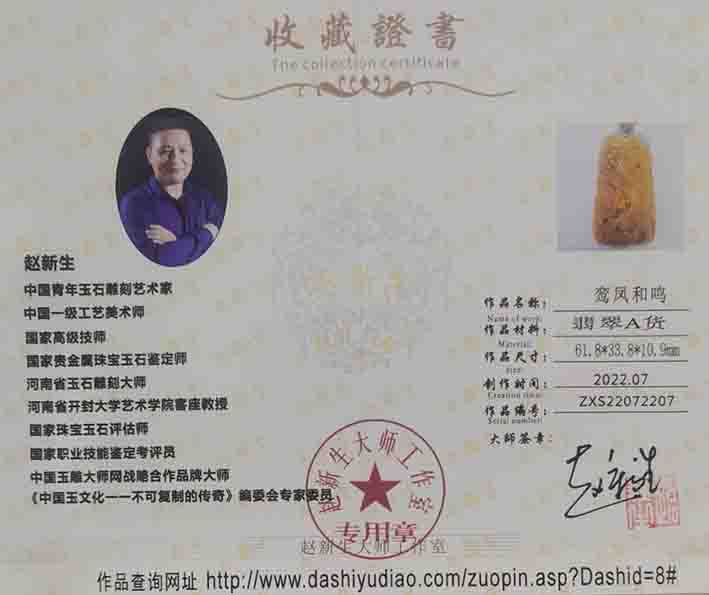 收藏證書
The collection certificate
赵新生
中国青年玉石雕刻艺术家
中国一级工艺美术师
国家高级技师
国家贵金属珠宝玉石鉴定师
河南省玉石雕刻大师
河南省开封大学艺术学院客座教授
国家珠宝玉石评估师
国家职业技能鉴定考评员
中国玉雕大师网战略合作品牌大师
《中国玉文化一一不可复制的传奇》编委会专家委员
作品名称: 鸾凤和鸣
Name of work:
作品材料: 翡翠A货
Material:
作品尺寸: 61.8*33.8*10.9mm
size:
创作时间: 2022.07
Creation time:
作品编号: ZXS22072207
Serial number:
大师签章:
赵新生
赵新生大师工作室
专用章
赵新生大师工作室
作品查询网址 http://www.dashiyudiao.com/zuopin.asp?Dashid=8#